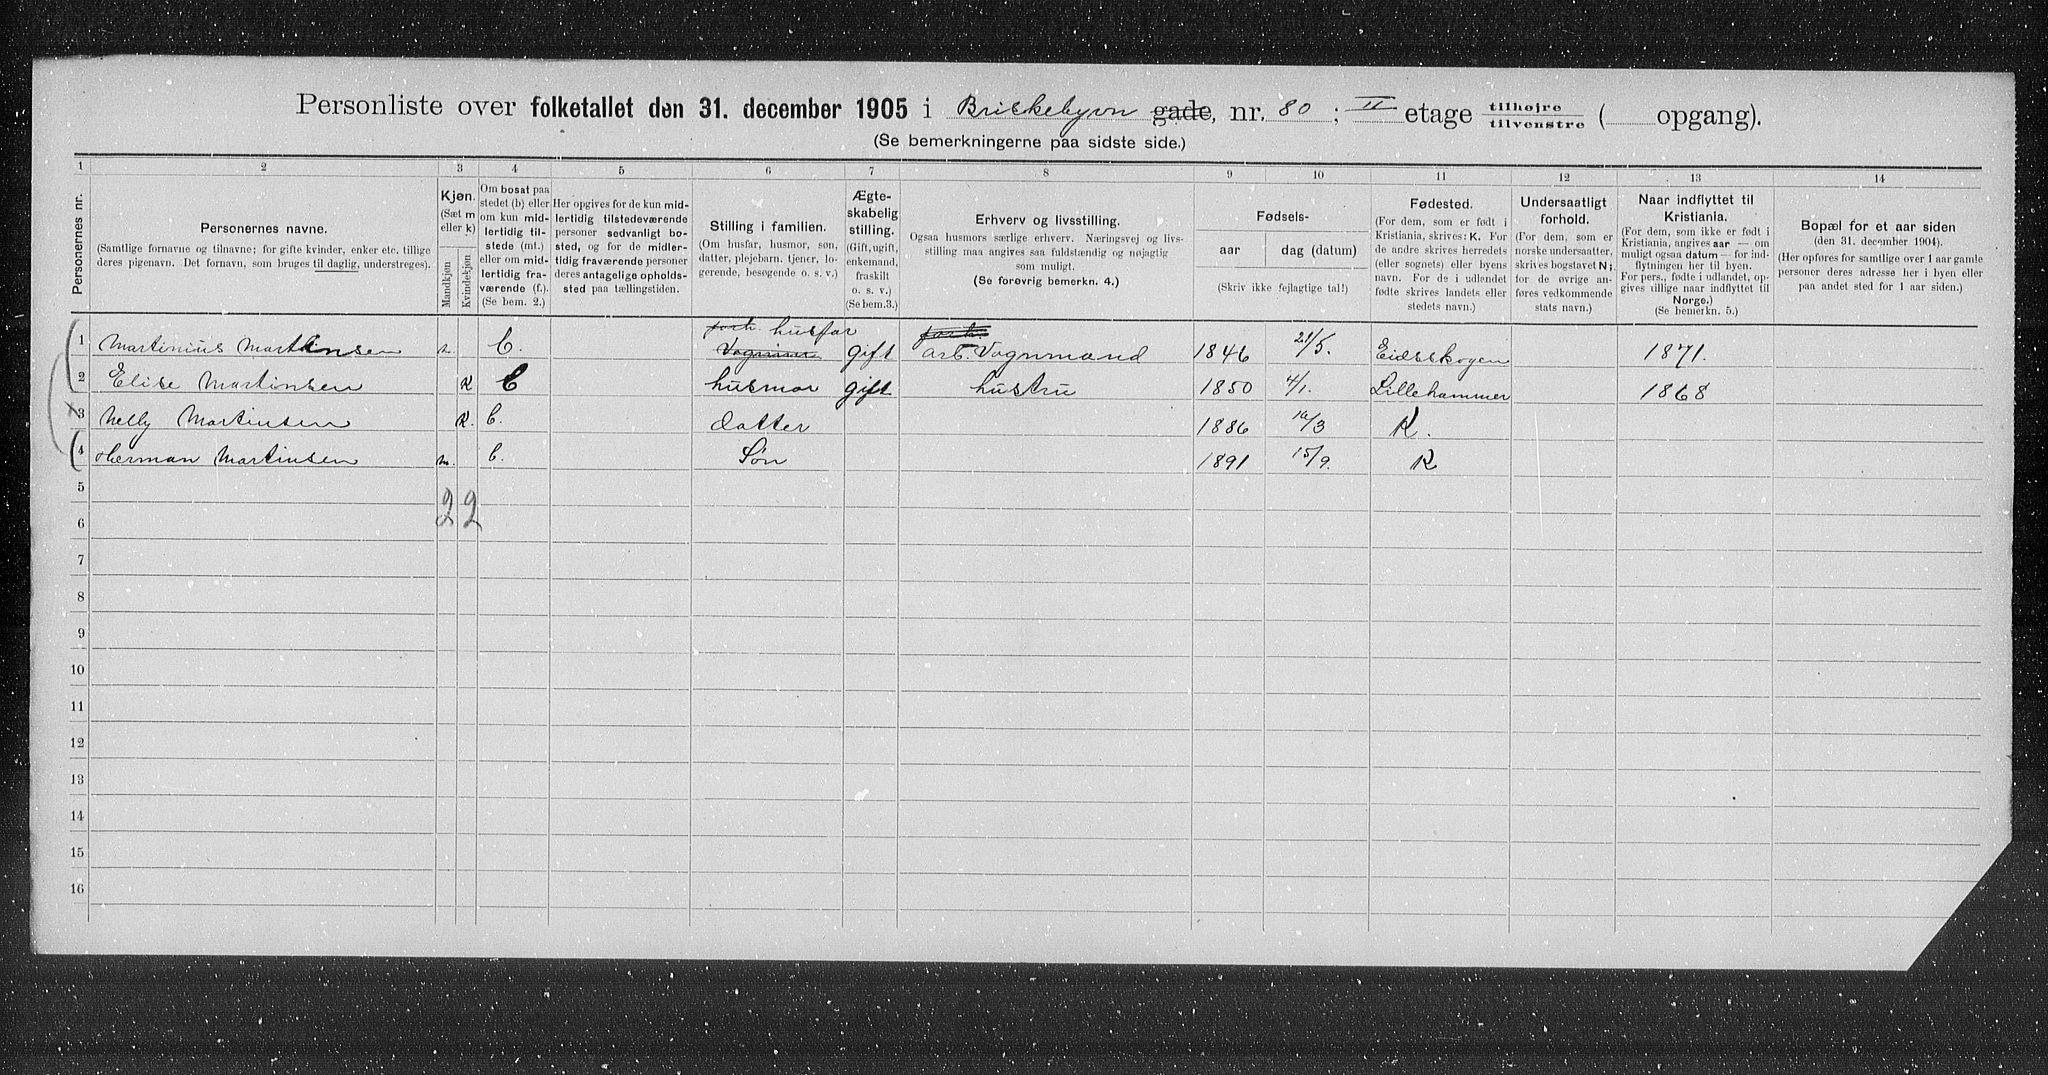 Personliste over folketallet den 31. december 1905 i Briskebyvn gade, nr. 80; II etage tilhøjre tilvenstre ( opgang).
(Se bemerkningerne paa sidste side.)
1 2 3 4 5 6 7 8 9 10 11 12 13 14
Personernes nr.
Personernes navne.
(Samtlige fornavne og tilnavne; for gifte kvinder, enker etc. tillige
deres pigenavn. Det fornavn, som bruges til daglig, understreges).
Kjøn.
(Sæt m
eller k)
Mandkjøn
Kvindekjøn
Om bosat paa
stedet (b) eller
om kun mid-
lertidig til-
stede (mt.)
eller om mid-
lertidig fra-
værende (f.).
(Se bem. 2.)
Her opgives for de kun mid-
lertidig tilstedeværende
personer sedvanligt bo-
sted, og for de midler-
tidig fraværende personer
deres antagelige opholds-
sted paa tællingstiden.
Stilling i familien.
(Om husfar, husmor, søn,
datter, plejebarn, tjener, lo-
gerende, besøgende o. s. v.)
Ægte-
skabelig
stilling.
(Gift, ugift,
enkemand,
fraskilt
o. s. v.)
(Se bem.3.)
Erhverv og livsstilling.
Ogsaa husmors særlige erhverv. Næringsvej og livs-
stilling maa angives saa fuldstændig og nøjagtig
som muligt.
(Se forøvrig bemerkn. 4.)
Fødsels-
aar
dag (datum)
(Skriv ikke fejlagtige tal!)
Fødested.
(For dem, som er født i
Kristiania, skrives: K. For
de andre skrives herredets
(eller sognets) eller byens
navn. For de i udlendet
fødte skrives landets eller
stedets navn.)
Undersaatligt
forhold.
(For dem, som er
norske undersaatter,
skrives bogstavet N;
for de øvrige an-
føres vedkommende
stats navn.)
Naar indflyttet til
Kristiania.
(For dem, som ikke er født i
Kristiania, angives aar — om
muligt ogsaa datum — for ind-
flytningen her til byen.
For pers., fødte i udlandet, op-
gives tillige naar indflyttet til
Norge.)
(Se bemerkn. 5.)
Bopæl for et aar siden
(den 31. december 1904).
(Her opføres for samtlige over 1 aar gamle
personer deres adresse her i byen eller
paa andet sted for 1 aar siden.)
1 Martinius Martinsen m. b. husfar gift arb. Vognmand 1846 21/5. Eidsskogen 1871.
2 Elise Martinsen K b husmor gift hustru 1850 4/1. Lillehammer 1868
3 Nelly Martinsen K. b. datter 1886 10/3 K.
4 Herman Martinsen m. b. Søn 1891 15/9. K
5
2 2
6
7
8
9
10
11
12
13
14
15
16